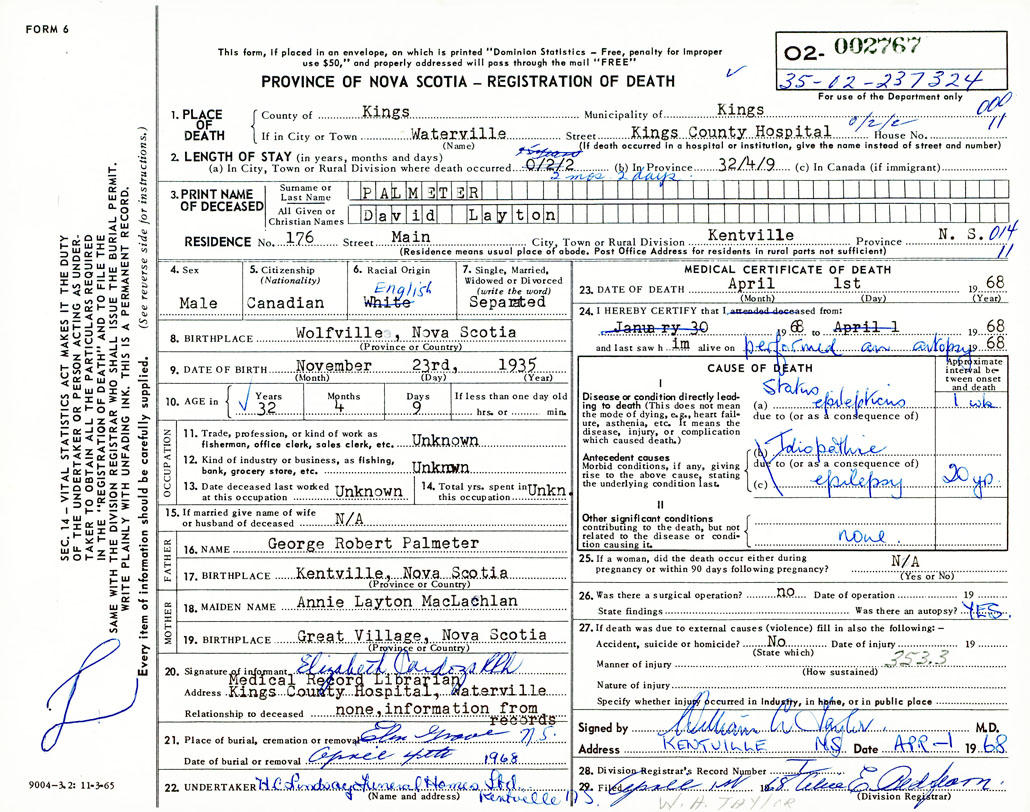 FORM 6
This form, if placed in an envelope, on which is printed "Dominion Statistics – Free, penalty for improper
use $50," and properly addressed will pass through the mail "FREE"
PROVINCE OF NOVA SCOTIA – REGISTRATION OF DEATH
02- 002767
35-02-237324
For use of the Department only
000
11
1. PLACE OF DEATH
County of Kings Municipality of Kings
0/2/2
If in City or Town Waterville Street Kings County Hospital House No.
(Name) (If death occurred in a hospital or institution, give the name instead of street and number)
2. LENGTH OF STAY (in years, months and days)
(a) In City, Town or Rural Division where death occurred 0/2/2 (b) In Province 32/4/9 (c) In Canada (if immigrant)
2 mos 2 days
3. PRINT NAME OF DECEASED
Surname or Last Name PALMETER
All Given or Christian Names David Layton
RESIDENCE No. 176 Street Main City, Town or Rural Division Kentville Province N. S. 014
(Residence means usual place of abode. Post Office Address for residents in rural parts not sufficient) 11
4. Sex
Male
5. Citizenship
(Nationality)
Canadian
6. Racial Origin
English
White
7. Single, Married,
Widowed or Divorced
(write the word)
Separated
8. BIRTHPLACE Wolfville, Nova Scotia
(Province or Country)
9. DATE OF BIRTH November 23rd, 1935
(Month) (Day) (Year)
10. AGE in
Years Months Days If less than one day old
32 4 9 hrs. or min.
OCCUPATION
11. Trade, profession, or kind of work as
fisherman, office clerk, sales clerk, etc. Unknown
12. Kind of industry or business, as fishing,
bank, grocery store, etc. Unknwn
13. Date deceased last worked
at this occupation Unknown
14. Total yrs. spent in
this occupation Unkn.
15. If married give name of wife
or husband of deceased N/A
FATHER
16. NAME George Robert Palmeter
17. BIRTHPLACE Kentville, Nova Scotia
(Province or Country)
MOTHER
18. MAIDEN NAME Annie Layton MacLachlan
19. BIRTHPLACE Great Village, Nova Scotia
(Province or Country)
20. Signature of informant Elizabeth
Medical Record Librarian
Address Kings County Hospital, Waterville
Relationship to deceased none,information from
records
21. Place of burial, cremation or removal Elm Grove N.S.
Date of burial or removal April 4th 1968
22. UNDERTAKER H.C. Lindsay Funeral Homes Ltd.
(Name and address) Kentville N.S.
MEDICAL CERTIFICATE OF DEATH
23. DATE OF DEATH April 1st 1968
(Month) (Day) (Year)
24. I HEREBY CERTIFY that I attended deceased from:
January 30 1968 to April 1 1968
and last saw him alive on performed an autopsy 1968
CAUSE OF DEATH
Approximate
interval be-
tween onset
and death
I
Disease or condition directly lead-
ing to death (This does not mean
the mode of dying, e.g., heart fail-
ure, asthenia, etc. It means the
disease, injury, or complication
which caused death.)
Status
(a) epilepticus 1 wk
due to (or as a consequence of)
Antecedent causes
Morbid conditions, if any, giving
rise to the above cause, stating
the underlying condition last.
(b) Idiopathic
due to (or as a consequence of)
(c) epilepsy 20 yrs.
II
Other significant conditions
contributing to the death, but not
related to the disease or condi-
tion causing it.
none.
25. If a woman, did the death occur either during
pregnancy or within 90 days following pregnancy? N/A
(Yes or No)
26. Was there a surgical operation? no Date of operation 19
State findings Was there an autopsy? YES.
27. If death was due to external causes (violence) fill in also the following:–
Accident, suicide or homicide? No Date of injury 19
(State which) 353.3
Manner of injury
(How sustained)
Nature of injury
Specify whether injury occurred in Industry, in home, or in public place
Signed by William A Taylor M.D.
Address KENTVILLE NS Date APR-1 1968
28. Division Registrar's Record Number
29. Filed April 1st 1968
(Division Registrar)
W. A. TAYLOR
SEC. 14 – VITAL STATISTICS ACT MAKES IT THE DUTY
OF THE UNDERTAKER OR PERSON ACTING AS UNDER-
TAKER TO OBTAIN ALL THE PARTICULARS REQUIRED
IN THE "REGISTRATION OF DEATH" AND TO FILE THE
SAME WITH THE DIVISION REGISTRAR WHO SHALL ISSUE THE BURIAL PERMIT.
WRITE PLAINLY WITH UNFADING INK. THIS IS A PERMANENT RECORD.
Every item of information should be carefully supplied. (See reverse side for instructions.)
9004-3.2: 11-3-65